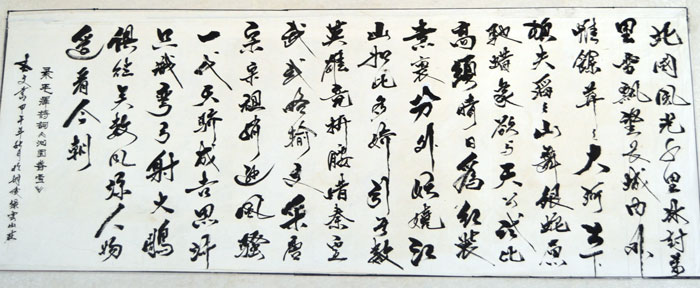 北国风光千里冰封万
里雪飘望长城内外
惟馀莽々大河上下
顿失滔々山舞银蛇原
驰蜡象欲与天公试比
高须晴日看红装
素裹分外妖娆江
山如此多娇引无数
英雄竞折腰惜秦皇
武略输文采唐
宗宋祖稍逊风骚
一代天骄成吉思汗
只识弯弓射大鵰
俱往矣数风流人物
还看今朝
毛泽东词沁园春雪